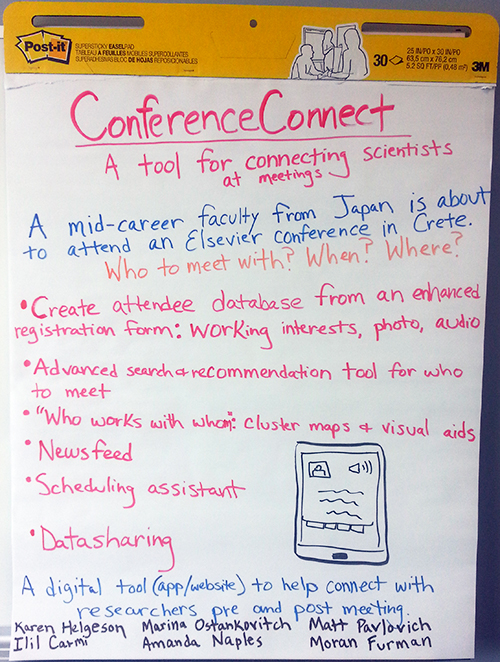 Post-it
SUPERSTICKY EASEL PAD
TABLEAU À FEUILLES MOBILES SUPERCOLLANTES
SUPERADHESIVAS BLOC DE HOJAS REPOSICIONABLES
30
25 IN/PO x 30 IN/PO
63,5 cm x 76,2 cm
5.2 SQ FT/PI² (0,48 m²)
3M
ConferenceConnect
A tool for connecting scientists
at meetings
A mid-career faculty from Japan is about
to attend an Elsevier conference in Crete.
Who to meet with? When? Where?
• Create attendee database from an enhanced
registration form: working interests, photo, audio
• Advanced search & recommendation tool for who
to meet
• "Who works with whom": Cluster maps & visual aids
• Newsfeed
• Scheduling assistant
• Datasharing
A digital tool (app/website) to help connect with
researchers pre and post meeting.
Karen Helgeson Marina Ostankovitch Matt Pavlovich
Ilil Carmi Amanda Naples Moran Furman